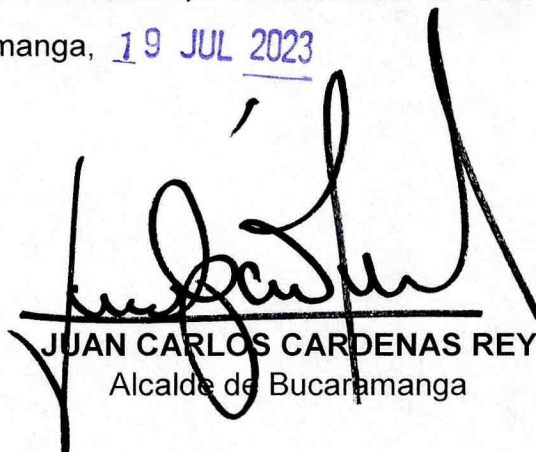 manga, 19 JUL 2023
JUAN CARLOS CARDENAS REY
Alcalde de Bucaramanga